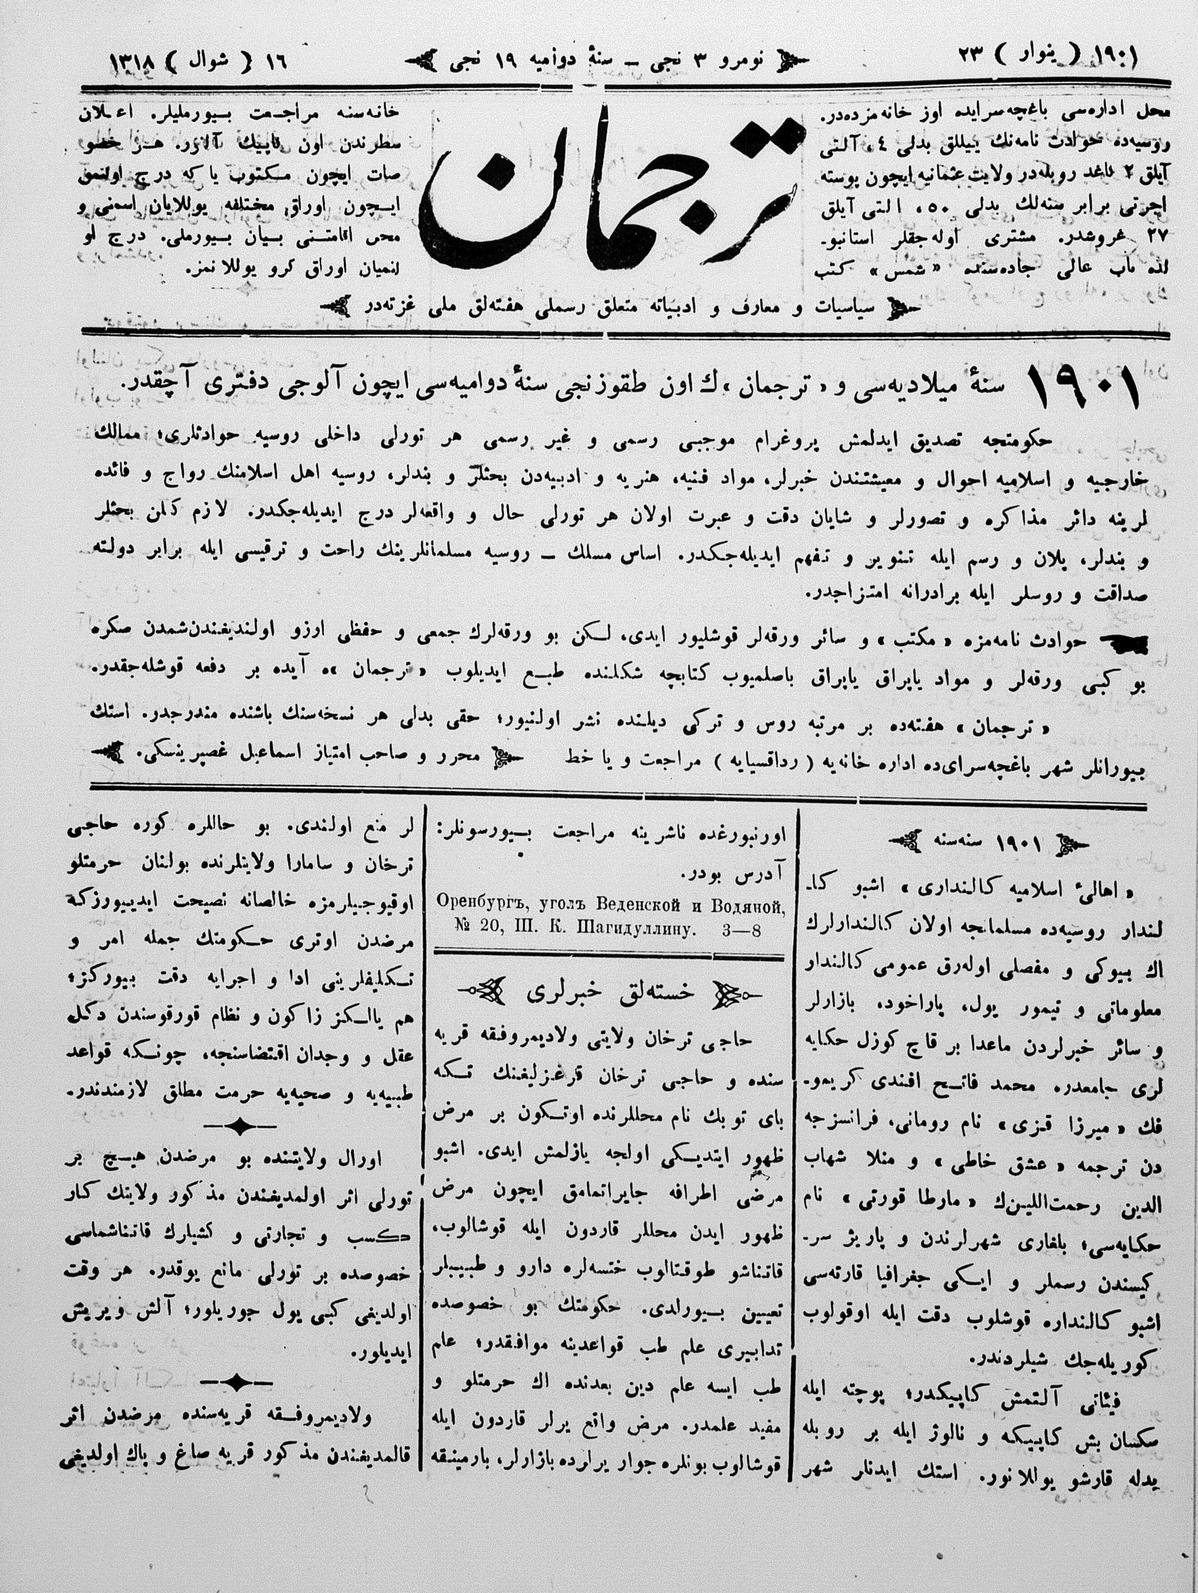 ١٩٠١ ( ینوار ) ٢٣
نومرو ٣ نجی ــ سنۀ دوامیه ١٩ نجی
١٦ ( شوال ) ١٣١٨
محل اداره‌سی باغچه‌سرایده اوز خانه‌مزده‌در.
روسیه‌ده حوادث نامه‌نك ییللق بدلی ٤، آلتی
آیلق ٢ کاغد روبله‌در ولایت عثمانیه ایچون پوسته
اجرتی برابر سنه‌لك بدلی ٥٠، التی آیلق
٢٧ غروشدر. مشتری اوله‌جقلر استانبو-
لده باب عالی جاده‌سنده «شمس» کتب
ترجمان
خانه‌سنه مراجعت بیورملیلر. اعلان
سطرندن اون کاپیك آلنور. هر خصو
صات ایچون مکتوب یا که درج اولنمق
ایچون اوراق مختلفه یوللایان اسمنی و
محل اقامتنی بیان بیورملی. درج او
لنمیان اوراق کرو یوللانمز.
سیاسیات و معارف و ادبیاته متعلق رسملی هفته‌لق ملی غزته‌در
١٩٠١ سنۀ میلادیه‌سی و «ترجمان»ك اون طقوزنجی سنۀ دوامیه‌سی ایچون آلوجی دفتری آچقدر.
حکومتجه تصدیق ایدلمش پروغرام موجبی رسمی و غیر رسمی هر تورلی داخلی روسیه حوادثلری؛ ممالك
خارجیه و اسلامیه احوال و معیشتندن خبرلر، مواد فنیه، هنریه و ادبیه‌دن بحثلر و بندلر، روسیه اهل اسلامنك رواج و فائده
لرینه دائر مذاکره و تصورلر و شایان دقت و عبرت اولان هر تورلی حال و واقعه‌لر درج ایدیله‌جکدر. لازم کلن بحثلر
و بندلر، پلان و رسم ایله تنویر و تفهم ایدیله‌جکدر. اساس مسلك ــ روسیه مسلمانلرینك راحت و ترقیسی ایله برابر دولته
صداقت و روسلر ایله برادرانه امتزاجدر.
حوادث نامه‌مزه «مکتب» و سائر ورقه‌لر قوشلیور ایدی، لکن بو ورقه‌لرك جمعی و حفظی ارزو اولندیغندن‌شمدن صکره
بو کبی ورقه‌لر و مواد یاپراق یاپراق باصلمیوب کتابچه شکلنده طبع ایدیلوب «ترجمان»ه آیده بر دفعه قوشله‌جقدر.
«ترجمان» هفته‌ده بر مرتبه روس و ترکی دیلنده نشر اولنیور؛ حقی بدلی هر نسخه‌سنك باشنده مندرجدر. استك
بیورانلر شهر باغچه‌سرای‌ده اداره خانه‌یه (رداقسیایه) مراجعت و یا خط
محرر و صاحب امتیاز اسماعیل غصپرینسکی.
١٩٠١ سنه‌سنه
«اهالئ اسلامیه کالنداری» اشبو کا-
لندار روسیه‌ده مسلمانجه اولان کالندارلرك
اك بیوکی و مفصلی اوله‌رق عمومی کالندار
معلوماتی و تیمور یول، پاراخود، بازارلر
و سائر خبرلردن ماعدا بر قاچ کوزل حکایه
لری جامعدر. محمد فاتح افندی کریمو-
فك «میرزا قزی» نام رومانی، فرانسزجه
دن ترجمه «عشق خاطی» و منلا شهاب
الدین رحمت‌اللین‌ك «مارطا قورتی» نام
حکایه‌سی؛ بلغاری شهرلرندن و پاریژ سر-
کیسندن رسملر و ایکی جغرافیا قارته‌سی
اشبو کالنداره قوشلوب دقت ایله اوقولوب
کوریله‌جك شیلردندر.
فیئاتی آلتمش کاپیکدر؛ پوچته ایله
سکسان بش کاپیکه و نالوژ ایله بر روبله
یدله قارشو یوللانور. استك ایدنلر شهر
اورنبورغده ناشرینه مراجعت بیورسونلر:
آدرس بودر.
Оренбургъ, уголъ Веденской и Водяной,
№ 20, Ш. К. Шагидуллину. 3—8
خسته‌لق خبرلری
حاجی ترخان ولایتی ولادیمروفقه قریه
سنده و حاجی ترخان قرغزلیغنك تکه
بای توبك نام محللرنده اوتکون بر مرض
ظهور ایتدیکی اولجه یازلمش ایدی. اشبو
مرضی اطرافه جایراتمامق ایچون مرض
ظهور ایدن محللر قاردون ایله قوشالوب،
قاتناشو طوقتالوب ختسه‌لره دارو و طبیبلر
تعیین بیورلدی. حکومتك بو خصوصده
تدابیری علم طب قواعدینه موافقدر؛ علم
طب ایسه علم دین بعدنده اك حرمتلو و
مفید علمدر. مرض واقع یرلر قاردون ایله
قوشالوب بونلره جوار یرلرده بازارلر، یارمینقه
لر منع اولندی. بو حاللره کوره حاجی
ترخان و سامارا ولایتلرنده بولنان حرمتلو
اوقیوجیلرمزه خالصانه نصیحت ایدییورزکه
مرضدن اوتری حکومتك جمله امر و
تکلیفلرینی ادا و اجرایه دقت بیورکز؛
هم یالکز زاکون و نظام قورقوسندن دکل
عقل و وجدان اقتضاسنجه، چونکه قواعد
طبیه‌یه و صحیه‌یه حرمت مطلق لازمندندر.
اورال ولایتنده بو مرضدن هیچ بر
تورلی اثر اولمدیغندن مذکور ولایتك کار
کسب و تجارتی و کشیلرك قاتناشماسی
خصوصده بر تورلی مانع یوقدر. هر وقت
اولدیغی کبی یول جوریلور؛ آلش ویریش
ایدیلور.
ولادیمروفقه قریه‌سنده مرضدن اثر
قالمدیغندن مذکور قریه صاغ و پاك اولدیغی